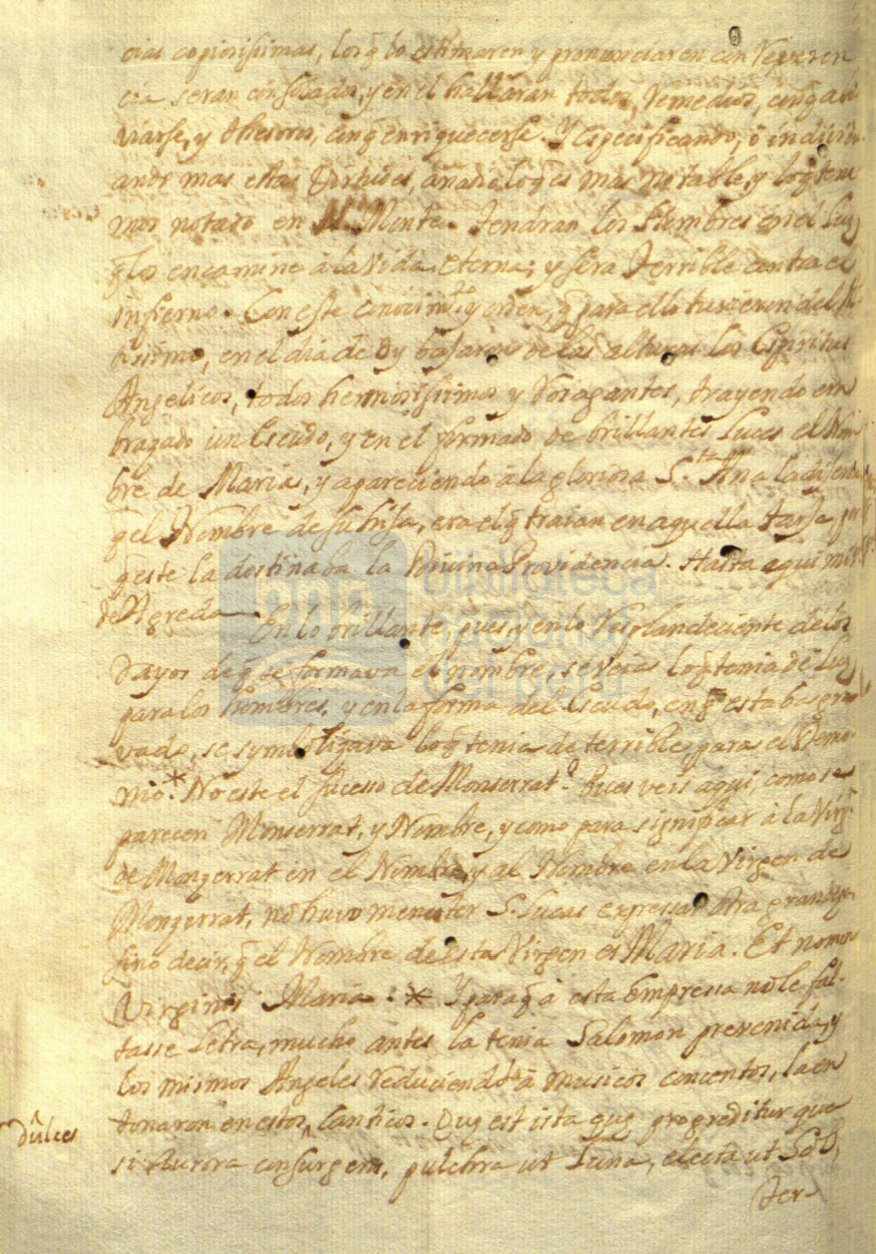 cias copiosissimas, los q̃ lo estimaren y pronunciaren con Reveren
cia seran consolados, y en el hallaran todos, remedios, con q̃ ali
viarse, y thesoros, con q̃ enriquecerse. Y especificando, ó individu
ando mas estas virtudes, añadio lo q̃ es mas notable, y lo q̃ tene
mos notado en N.ro Monte. Tendran los Hombres en el Luz
q̃ los encamine à la Vida eterna; y sera Terrible contra el
infierno. Con este conocim.to y orden, q̃ para ello tuvieron del Al
tissimo, en el dia de oy bajaron de las alturas los Espiritus
Angelicos, todos hermosissimos y rozagantes, trayendo em
brazado un Escudo, y en el formado de brillantes Luces el Nom
bre de Maria, y apareciendo à la gloriosa S.ta Ana la dixeron
q̃ el Nombre de su hija, era el q̃ traian en aquella tarja, por
q̃ este la destinaba la Divina Providencia. Hasta aqui
de Agreda. En lo brillante, pues, y en lo Resplandeciente de los
rayos de q̃ se formava el nombre, se veia lo q̃ tenia de Luz
para los hombres, y en la forma del Escudo, en q̃ estaba gra
vado, se symbolizava lo q̃ tenia de terrible para el Demo
nio. * No este el sucesso de Monserrat? Pues veis aqui, como se
parecen Monserrat, y Nombre, y como para significar à la Virg.n
de Monzerrat en el Nombre, y al Nombre en la Virgen de
Monzerrat, no huvo menester S. Lucas expressar otra grandeza,
sino decir, q̃ el Nombre de esta Virgen es Maria. Et nomen
Virginis Maria. * Y para q̃ à esta Empressa no le fal-
tasse Letra, mucho antes la tenia Salomon prevenida, y
los mismos Angeles reduciendola à musicos concentos, la en
tonaron en estos canticos. Quæ est ista quæ progreditur qua
dulces
si Aurora consurgens, pulchra ut Luna, electa ut Sol,
Ter-
bnp biblioteca
nacional
del perú